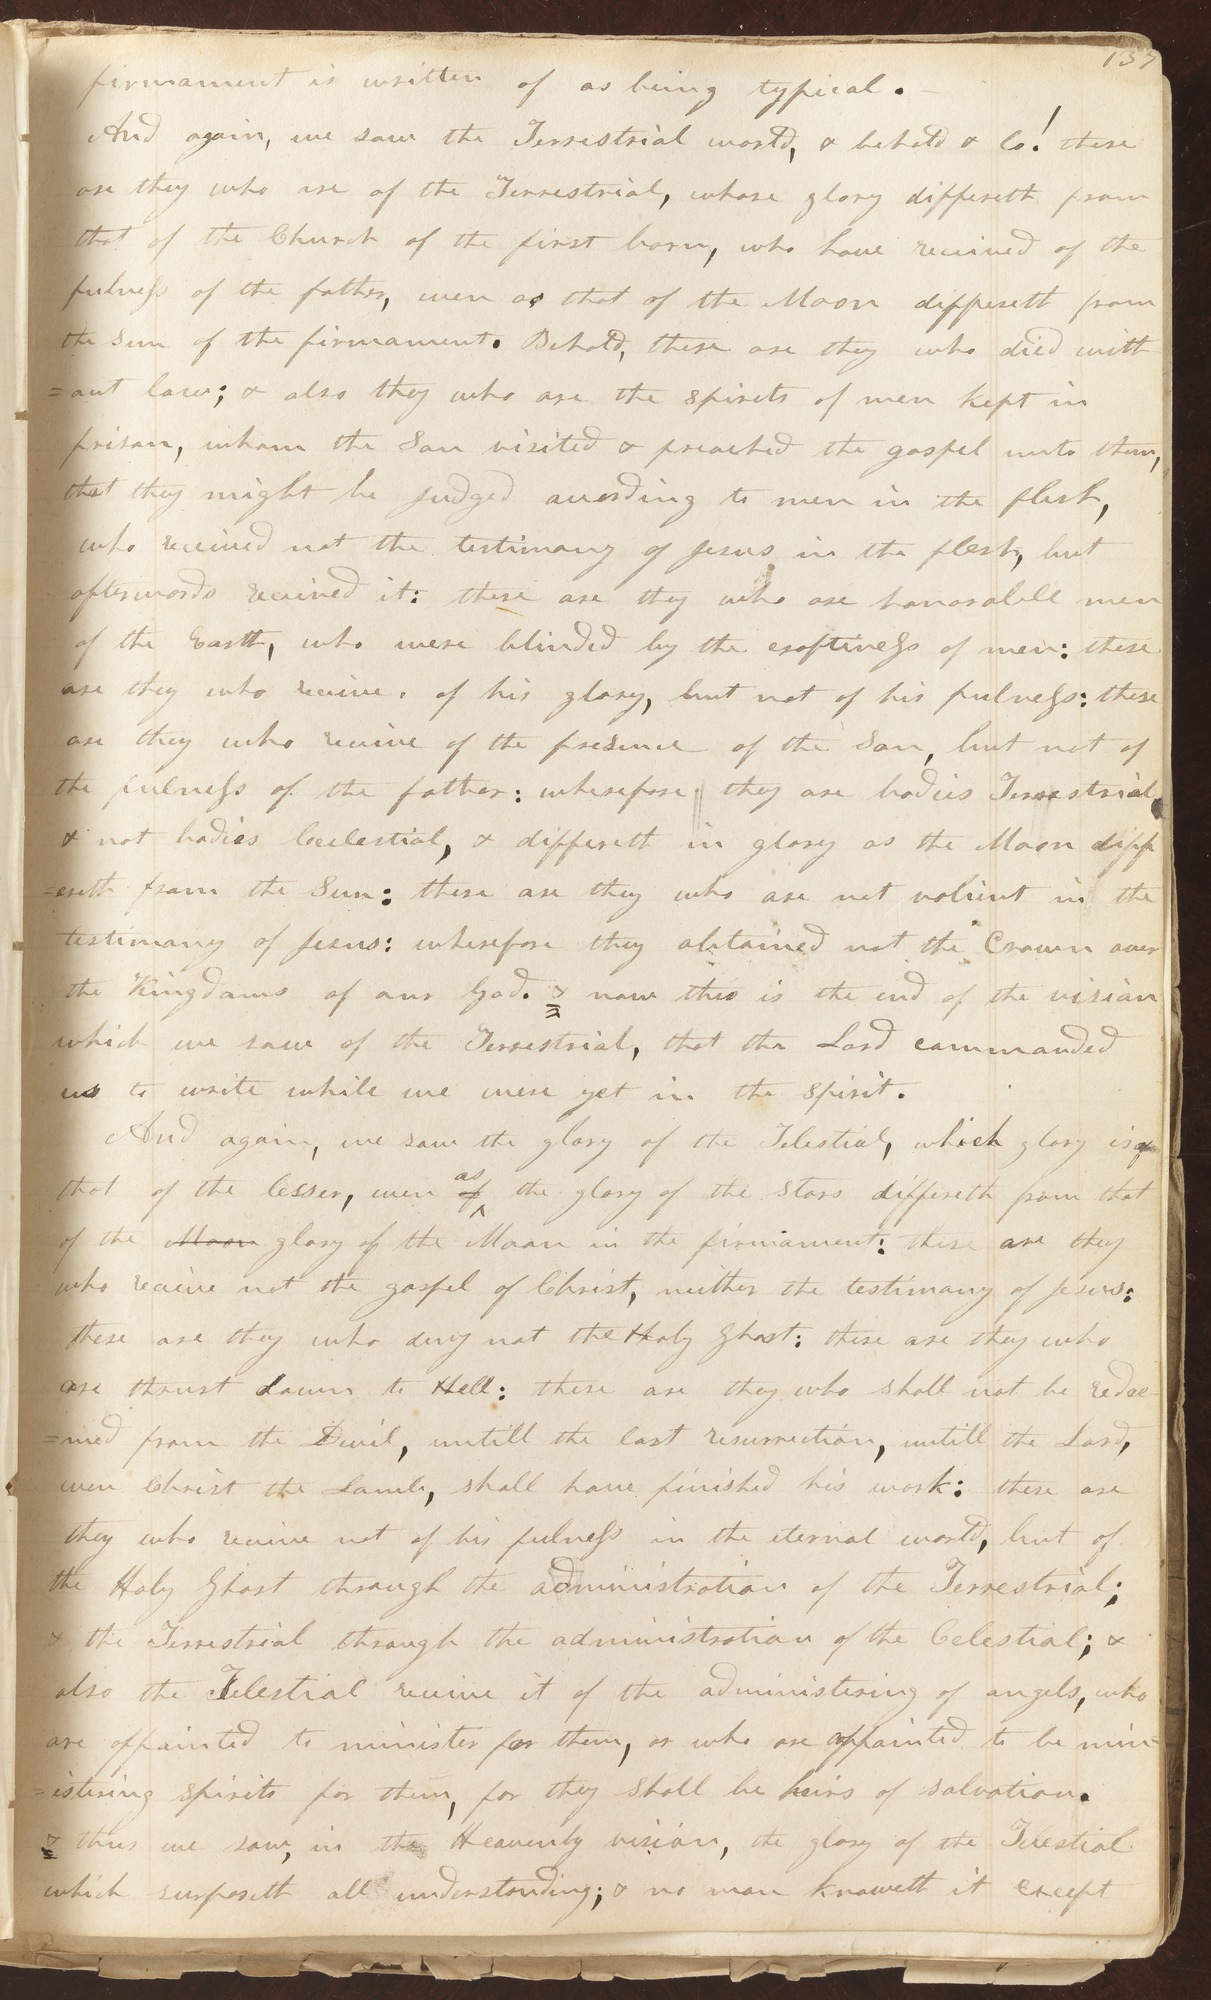 137
firmament is written of as being typical. —
And again, we saw the Terrestrial world, & behold & lo! these
are they who are of the Terrestrial, whose glory differeth from
that of the Church of the first born, who have received of the
fulness of the father, even as that of the Moon differeth from
the Sun of the firmament. Behold, these are they who died with
=out law; & also they who are the spirits of men kept in
prison, whom the Son visited & preached the gospel unto them,
that they might be judged according to men in the flesh,
who received not the testimony of Jesus in the flesh, but
afterwords received it: these are they who are honorabell men
of the Earth, who were blinded by the craftiness of men: these
are they who receive of his glory, but not of his fulness: these
are they who receive of the presence of the Son, but not of
the fulness of the father: wherefore they are bodies Terrestrial,
& not bodies Celestial, & differeth in glory as the Moon diff
=ereth from the Sun: these are they who are not valient in the
testimony of Jesus: wherefore they obtained not the Crown over
the Kingdoms of our God. & now this is the end of the vision
which we saw of the Terrestrial, that the Lord commanded
us to write while we were yet in the spirit.
And again, we saw the glory of the Telestial, which glory is of
that of the lesser, even of as the glory of the stars differeth from that
of the Moon glory of the Moon in the firmament: these are they
who receive not the gospel of Christ, neither the testimony of Jesus:
these are they who deny not the Holy Ghost: these are they who
are thrust down to Hell: these are they who shall not be redee=
=med from the Devil, untill the last resurrection, untill the Lord,
even Christ the Lamb, shall have finished his work: these are
they who receive not of his fulness in the eternal world, but of
the Holy Ghost through the administration of the Terrestrial;
& the Terrestrial through the administration of the Celestial; &
also the Telestial receive it of the administering of angels, who
are appainted to minister for them, or who are appainted to be min=
=istering spirits for them, for they shall be heirs of salvation.
& thus we saw, in the Heavenly vision, the glory of the Telestial
which surpaseth all understanding; & no man knoweth it except